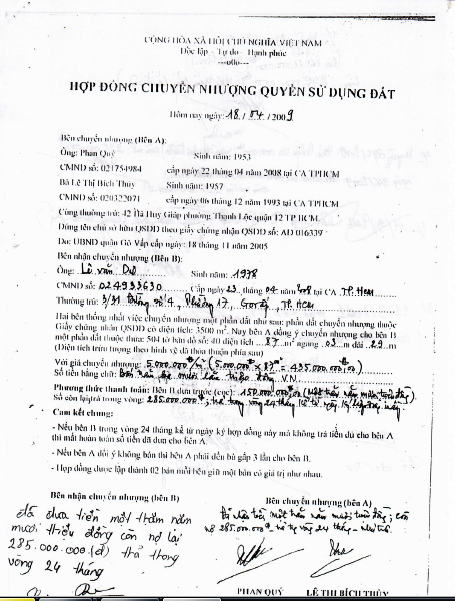 CỘNG HÒA XÃ HỘI CHỦ NGHĨA VIỆT NAM
Độc lập - Tự do - Hạnh phúc
---o0o---
HỢP ĐỒNG CHUYỂN NHƯỢNG QUYỀN SỬ DỤNG ĐẤT
Hôm nay ngày: 18 / 04 / 2009
Bên chuyển nhượng (Bên A):
Ông: Phan Quý Sinh năm: 1953
CMND số: 021754984 cấp ngày 22 tháng 04 năm 2008 tại CA TPHCM
Bà Lê Thị Bích Thủy Sinh năm: 1957
CMND số: 020322071 cấp ngày 06 tháng 12 năm 1993 tại CA TPHCM
Cùng thường trú: 42 Hà Huy Giáp phường Thạnh Lộc quận 12 TP HCM.
Đứng tên chủ sở hữu QSDĐ theo giấy chứng nhận QSDĐ số: AD 016339
Do: UBND quận Gò Vấp cấp ngày: 18 tháng 11 năm 2005
Bên nhận chuyển nhượng (Bên B):
Ông: Lê Văn Sinh năm: 1978
CMND số: 024933630 Cấp ngày 23 tháng 04 năm tại CA TP. HCM
Thường trú: 3/31 số 4, Phường 17, Gò Vấp, TP. HCM
Hai bên thống nhất việc chuyển nhượng một phần đất như sau: phần đất chuyển nhượng thuộc
Giấy chứng nhận QSDĐ có diện tích: 3500 m². Nay bên A đồng ý chuyển nhượng cho bên B
một phần đất thuộc thửa: 504 tờ bản đồ số: 40 diện tích ... 87 .. m² ngang . 03 .. m dài .. 29 .. m
(Diện tích trên tượng theo hình vẽ đã thỏa thuận phía sau)
Với giá chuyển nhượng: 5.000.000đ/m² (5.000.000đ x 87m² = 435.000.000đ)
Số tiền bằng chữ: Bốn trăm ba mươi lăm triệu đồng V.N
Phương thức thanh toán: Bên B đưa trước (cọc): 150.000.000 (Một trăm năm mươi triệu đồng)
Số còn lại trong vòng: 285.000.000đ, trả trong vòng 24 tháng kể từ ngày ký hợp đồng này.
- Cam kết chung:
- Nếu bên B trong vòng 24 tháng kể từ ngày ký hợp đồng này mà không trả tiền đủ cho bên A
thì mất hoàn toàn số tiền đã đưa cho bên A.
- Nếu bên A đổi ý không bán thì bên A phải đền bù gấp 3 lần cho bên B.
- Hợp đồng được lập thành 02 bản mỗi bên giữ một bản có giá trị như nhau.
Bên nhận chuyển nhượng (bên B)
đã đưa tiền một trăm năm
mươi triệu đồng còn nợ lại
285.000.000 (đ) trả trong
vòng 24 tháng
Bên chuyển nhượng (bên A)
Đã nhận tiền một trăm năm mươi triệu đồng, còn
nợ 285.000.000đ trả vòng 24 tháng
PHAN QUÝ LÊ THỊ BÍCH THỦY